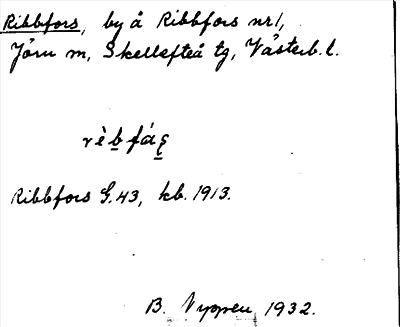 Ribbfors, by å Ribbfors nr 1,
Jörn sn, Skellefteå tg, Västerb. l.
Ribbfors G. 43, kb. 1913.
B. 1932.